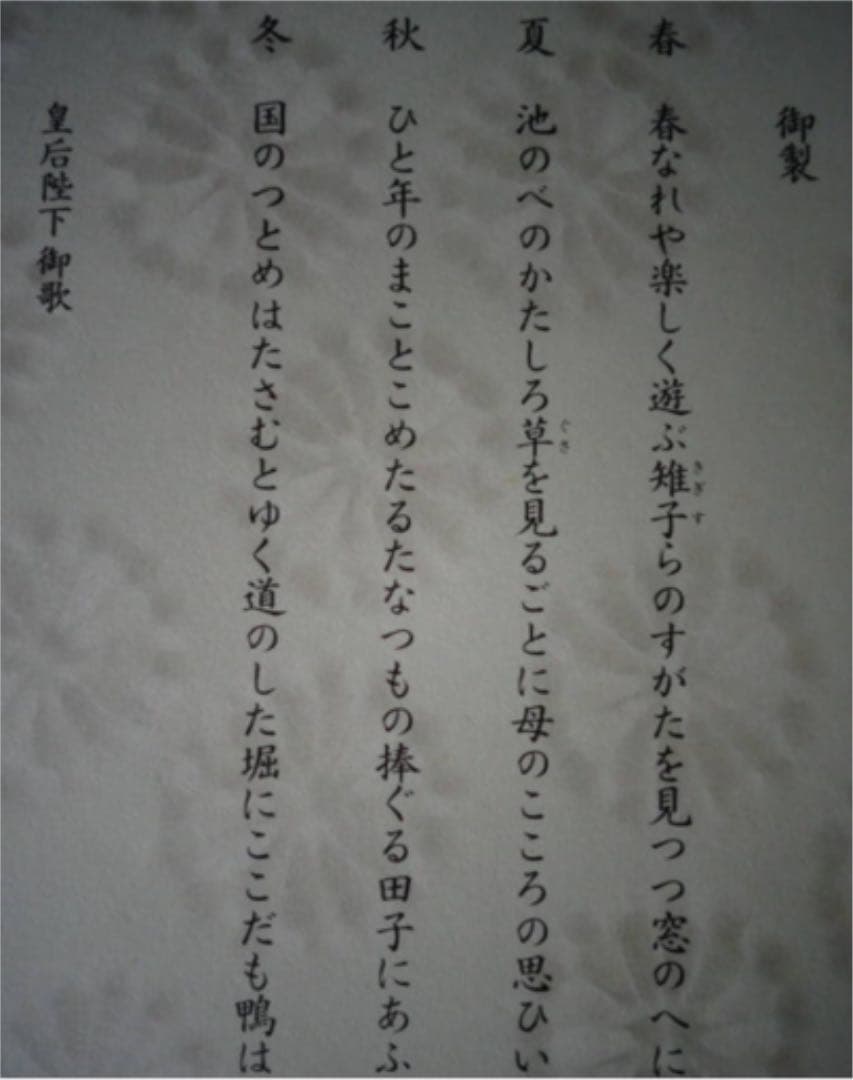 御製
春 春なれや楽しく遊ぶ雉子らのすがたを見つつ窓のへに
きぎす
夏 池のべのかたしろ草を見るごとに母のこころの思ひい
ぐさ
秋 ひと年のまことこめたるたなつもの捧ぐる田子にあふ
冬 国のつとめはたさむとゆく道のした堀にここだも鴨は
皇后陛下御歌